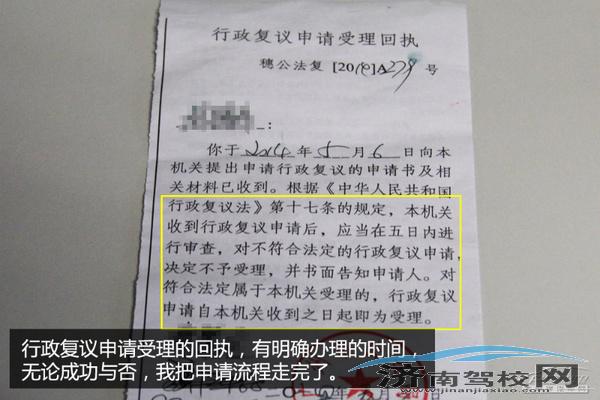 行政复议申请受理回执
穗公法复 [20
号
：
你于 2014 年 5 月 6 日向本
机关提出申请行政复议的申请书及相
关材料已收到。根据《中华人民共和国
行政复议法》第十七条的规定，本机关
收到行政复议申请后，应当在五日内进
行审查，对不符合法定的行政复议申请，
决定不予受理，并书面告知申请人。对
符合法定属于本机关受理的，行政复议
申请自本机关收到之日起即为受理。
行政复议申请受理的回执，有明确办理的时间，
无论成功与否，我把申请流程走完了。
济南驾校网